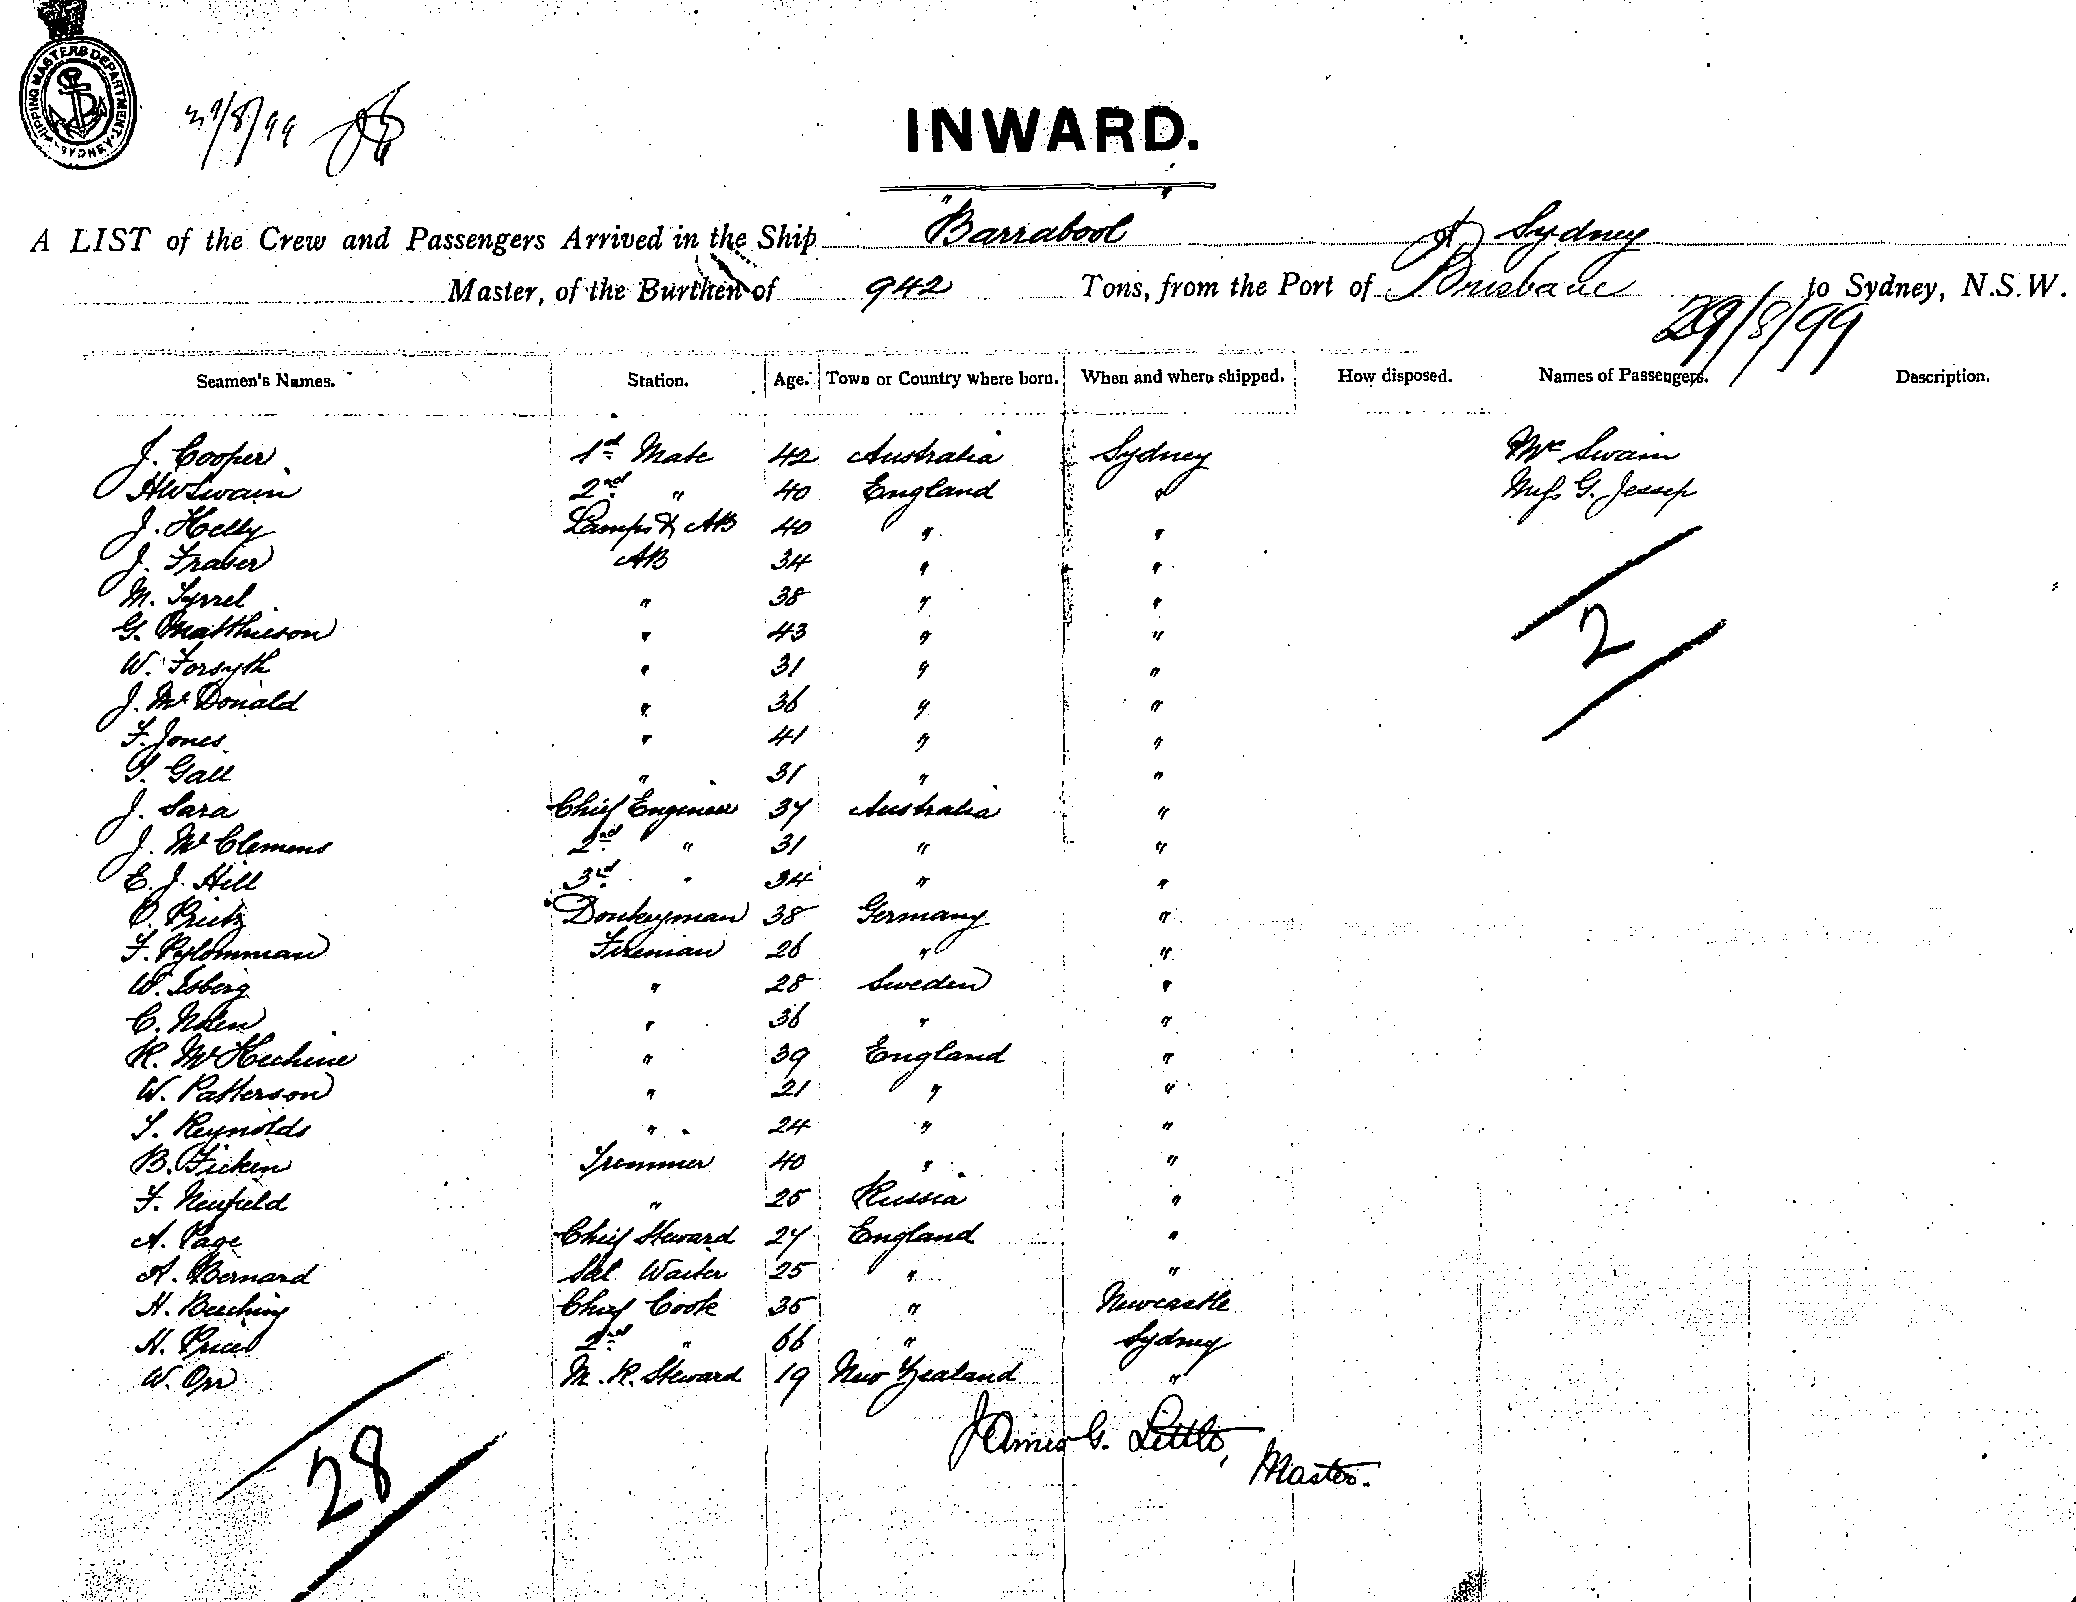 SHIPPING MASTERS DEPARTMENT. SYDNEY
29/8/99
INWARD.
A LIST of the Crew and Passengers Arrived in the Ship "Barrabool" of Sydney
Master, of the Burthen of 942 Tons, from the Port of Brisbane to Sydney, N.S.W.
29/8/99
Seamen's Names. Station. Age. Town or Country where born. When and where shipped. How disposed. Names of Passengers. Description.
J. Cooper 1st Mate 42 Australia Sydney Mr Swain
H W Swain 2nd " 40 England " Miss G. Jessep
J. Kelly Lamps & AB 40 " "
J. Fraser AB 34 " "
M. Tyrrel " 38 " "
G. Matthieson " 43 " "
W. Forsyth " 31 " "
J. McDonald " 36 " "
F. Jones " 41 " "
T. Gall " 31 " "
J. Sara Chief Engineer 37 Australia "
J. McClemens 2nd " 31 " "
E. J. Hill 3rd " 34 " "
Donkeyman 38 Germany "
F. Fireman 26 " "
W. Isberg " 28 Sweden "
C. " 36 " "
R. " 39 England "
W. Patterson " 21 " "
T. Reynolds " 24 " "
B. Ficken Trimmer 40 " "
F. Neufield " 25 Russia "
A. Page Chief Steward 27 England "
A. Bernard Sal. Waiter 25 " "
H. Beeching Chief Cook 35 " Newcastle
H. Price 2nd " 66 " Sydney
W. Orr M. R. Steward 19 New Zealand "
2
James G. Little,
Master.
28